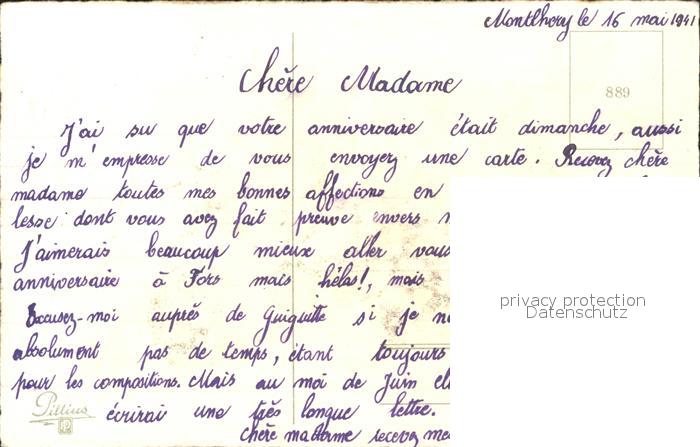 Montlhery le 16 mai 1941
889
Chère Madame
J'ai su que votre anniversaire était dimanche, aussi
je m'empresse de vous envoyez une carte. Recevez chère
madame toutes mes bonnes affections en
lesse dont vous avez fait preuve envers
J'aimerais beaucoup mieux aller vous
anniversaire à Fors mais hélas!, mais
privacy protection
Datenschutz
Excusez-moi auprès de Guiguitte si je
absolument pas de temps, étant toujours
pour les compositions. Mais au moi de Juin
Pillius écrirai une très longue lettre.
chère madame recevez